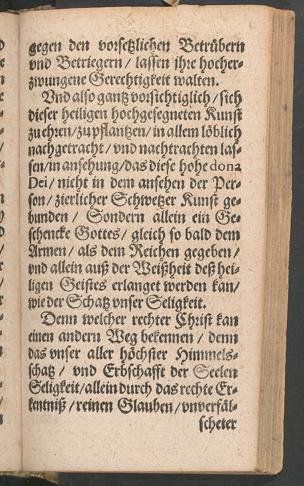 gegen den vorsetzlichen Betrübern
vnd Betriegern / lassen jhre hocher-
zwungene Gerechtigkeit walten.
Vnd also gantz vorsichtiglich / sich
dieser heiligen hochgesegneten Kunst
zu ehren / zu pflantzen / in allem löblich
nachgetracht / vnd nachtrachten las-
sen / in ansehung / das diese hohe dona
Dei / nicht in dem ansehen der Per-
son / zierlicher Schwetzer Kunst ge-
bunden / Sondern allein ein Ge-
schencke Gottes / gleich so bald dem
Armen / als dem Reichen gegeben /
vnd allein auß der Weißheit deß hei-
ligen Geistes erlanget werden kan /
wie der Schatz vnser Seligkeit.
Denn welcher rechter Christ kan
einen andern Weg bekennen / denn
das vnser aller höchster Himmels-
schatz / vnd Erbschafft der Seelen
Seligkeit / allein durch das rechte Er-
kentniß / reinen Glauben / vnverfäl-
scheter